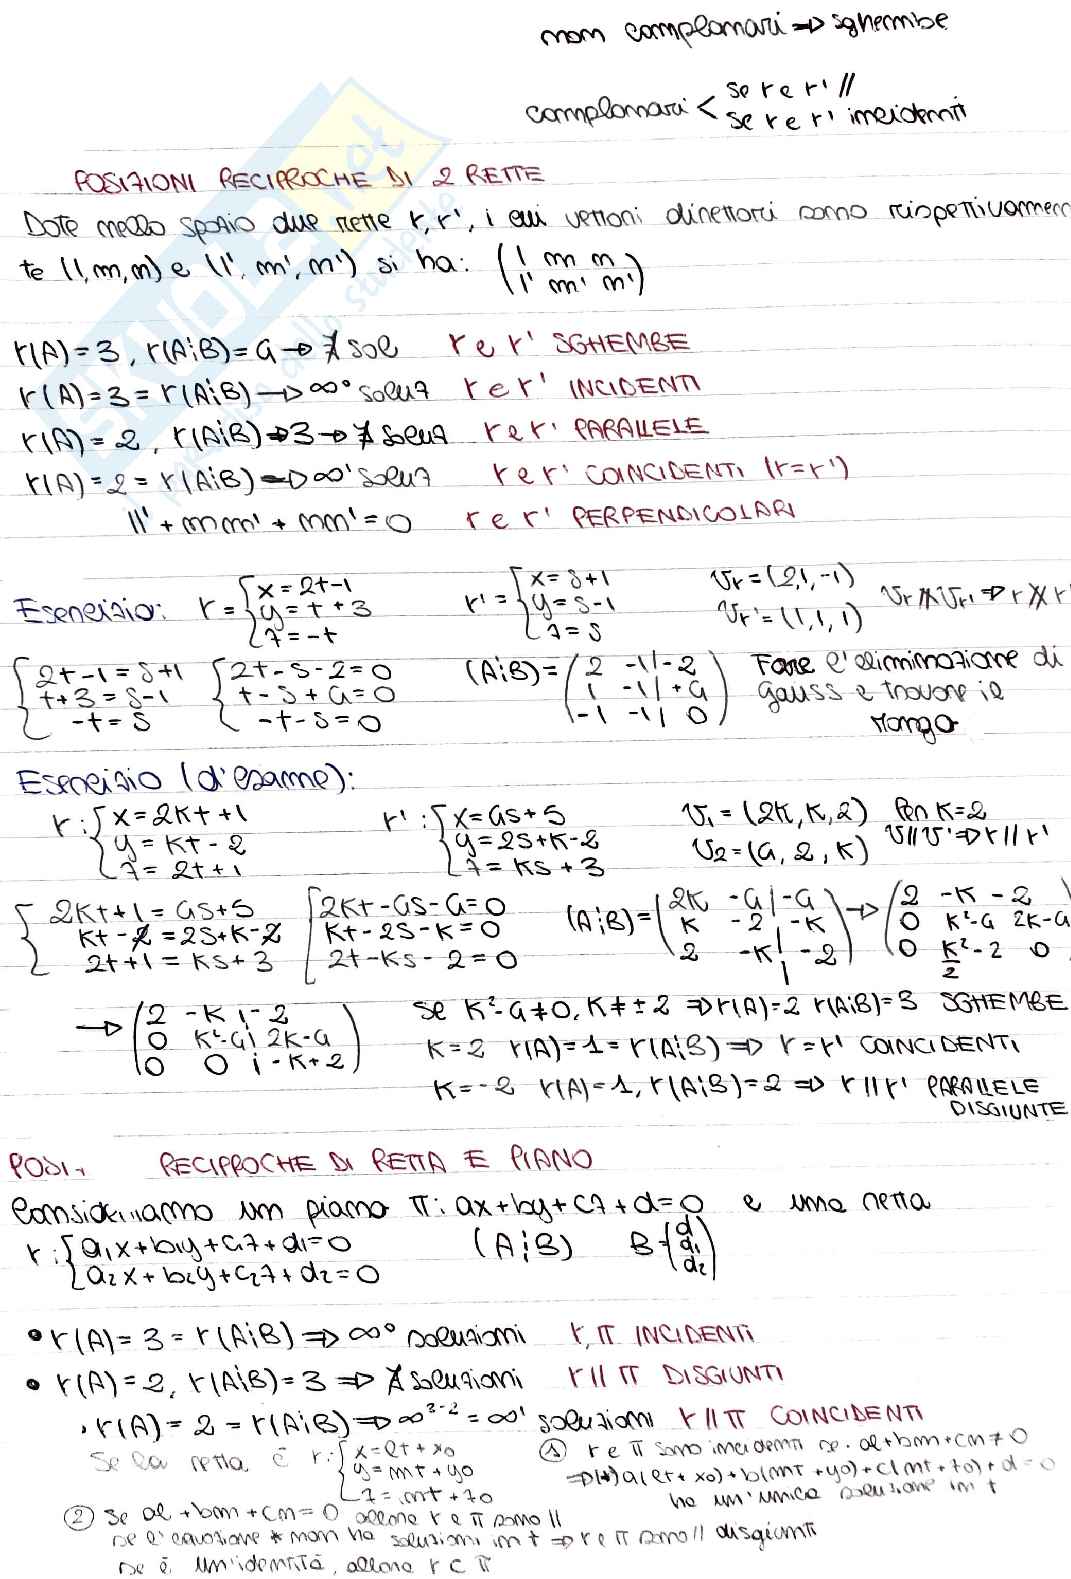 non complanari => sghembe
complanari < se r e r' //
se r e r' incidenti
POSIZIONI RECIPROCHE DI 2 RETTE
Date nello spazio due rette r, r', i cui vettori direttori sono rispettivamen
te (l, m, n) e (l', m', n') si ha: (l m n
l' m' n')
r(A)=3, r(A¦B)=4 → ∄ sol r e r' SGHEMBE
r(A)=3=r(A¦B) → ∞⁰ soluz r e r' INCIDENTI
r(A)=2, r(A¦B)=3 → ∄ soluz r e r' PARALLELE
r(A)=2=r(A¦B) => ∞¹ soluz r e r' COINCIDENTI (r=r')
ll'+mm'+nn'=0 r e r' PERPENDICOLARI
Esercizio: r = { x=2t-1
y=t+3
z=-t
r' = { x=s+1
y=s-1
z=s
Vr=(2,1,-1)
Vr'=(1,1,1)
Vr ∦ Vr' => r ∦ r'
{ 2t-1=s+1
t+3=s-1
-t=s
{ 2t-s-2=0
t-s+4=0
-t-s=0
(A¦B)= (2 -1 | -2
1 -1 | +4
-1 -1 | 0)
Fare l'eliminazione di
gauss e trovare il
rango
Esercizio (d'esame):
r: { x=2kt+1
y=kt-2
z=2t+1
r': { x=4s+5
y=2s+k-2
z=ks+3
V₁=(2k, k, 2)
V₂=(4, 2, k)
Per k=2
V//V' => r // r'
{ 2kt+1=4s+5
kt-2=2s+k-2
2t+1=ks+3
{ 2kt-4s-4=0
kt-2s-k=0
2t-ks-2=0
(A¦B)= (2k -4 | -4
k -2 ¦ -k
2 -k ¦ -2)
→ (2 -k -2
0 k²-4 2k-4
0 k²/2-2 0)
→ (2 -k ¦ -2
0 k²-4 ¦ 2k-4
0 0 ¦ -k+2)
Se k²-4≠0, k≠±2 => r(A)=2 r(A¦B)=3 SGHEMBE
k=2 r(A)=1=r(A¦B) => r=r' COINCIDENTI
k=-2 r(A)=1, r(A¦B)=2 => r // r' PARALLELE
DISGIUNTE
POSIZ. RECIPROCHE DI RETTA E PIANO
Consideriamo un piano π: ax+by+cz+d=0 e una retta
r: { a₁x+b₁y+c₁z+d₁=0
a₂x+b₂y+c₂z+d₂=0
(A¦B) B=(d
d₁
d₂)
• r(A)=3=r(A¦B) => ∞⁰ soluzioni r, π INCIDENTI
• r(A)=2, r(A¦B)=3 => ∄ soluzioni r // π DISGIUNTI
• r(A)=2=r(A¦B) => ∞³⁻²=∞¹ soluzioni r // π COINCIDENTI
Se la retta è r: { x=lt+x₀
y=mt+y₀
z=nt+z₀
① r e π sono incidenti se al+bm+cn≠0
=>(*) a(lt+x₀)+b(mt+y₀)+c(nt+z₀)+d=0
ha un'unica soluzione in t
② Se al+bm+cn=0 allora r e π sono //
se l'equazione * non ha soluzioni in t => r e π sono // disgiunti
se è un'identità, allora r ⊂ π